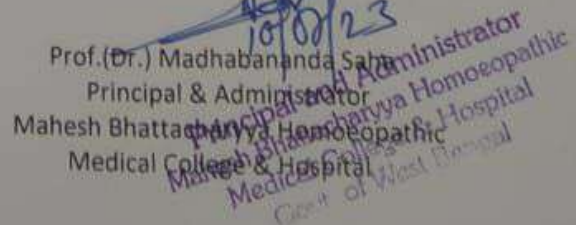 10/07/23
Prof.(Dr.) Madhabananda Saha
Principal & Administrator
Mahesh Bhattacharyya Homoeopathic
Medical College & Hospital
Principal and Administrator
Mahesh Bhattacharyya Homoeopathic
Medical College & Hospital
Govt of West Bengal